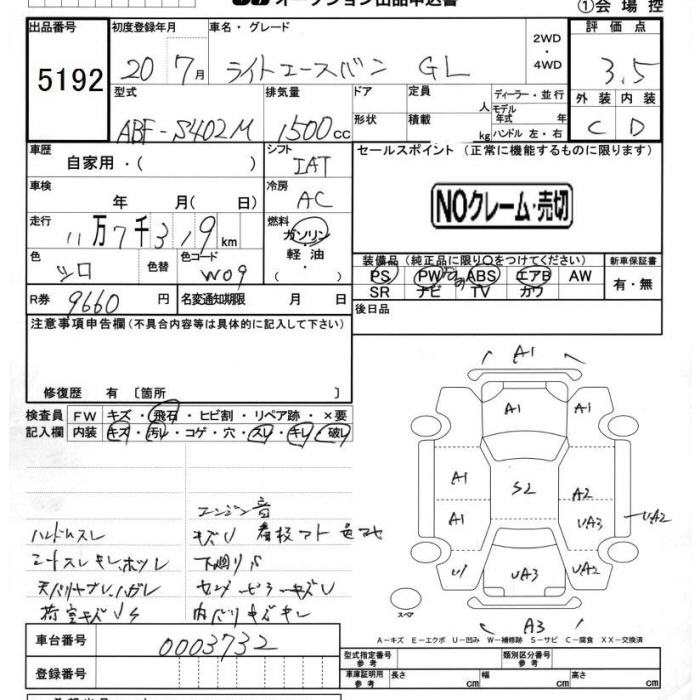 オークション出品申込書
①会場控
出品番号 初度登録年月 車名・グレード 2WD・4WD 評価点
5192 20 7月 ライトエースバン GL 3.5
型式 排気量 ドア 定員 人 ディーラー・並行 外装 内装
ABF-S402M 1500cc 形状 積載 kg モデル年式 年 ハンドル 左・右 C D
車歴 自家用・( ) シフト IAT セールスポイント (正常に機能するものに限ります)
車検 年 月( 日) 冷房 AC NOクレーム・売切
走行 11万7千319km 燃料 ガソリン・軽油・( )
色 シロ 色替 色コード W09
装備品 (純正品に限り○をつけてください) 新車保証書
PS PW ABS エアB AW 有・無
SR ナビ TV カワ
R券 9660円 名変通知期限 月 日 後日品
注意事項申告欄(不具合内容等は具体的に記入して下さい)
修復歴 有 〔箇所 〕
検査員 FW キズ・飛石・ヒビ割・リペア跡・×要
記入欄 内装 キズ・汚レ・コゲ・穴・スレ・キレ・破レ
エンジン音
ハンドルスレ キズU 看板アト 色アセ
シートスレキレホツレ 下廻りS
荷室キズUS 内バリキズキレ
A1
A1 A1
A1 S2 A2
A1 UA3 UA2
U1 UA3 UA2
スペア
A3
A-キズ E-エクボ U-凹み W-補修跡 S-サビ C-腐食 XX-交換済
車台番号 0003732
型式指定番号 参考 類別区分番号 参考
登録番号 車庫証明用 参考 長さ cm 幅 cm 高さ cm